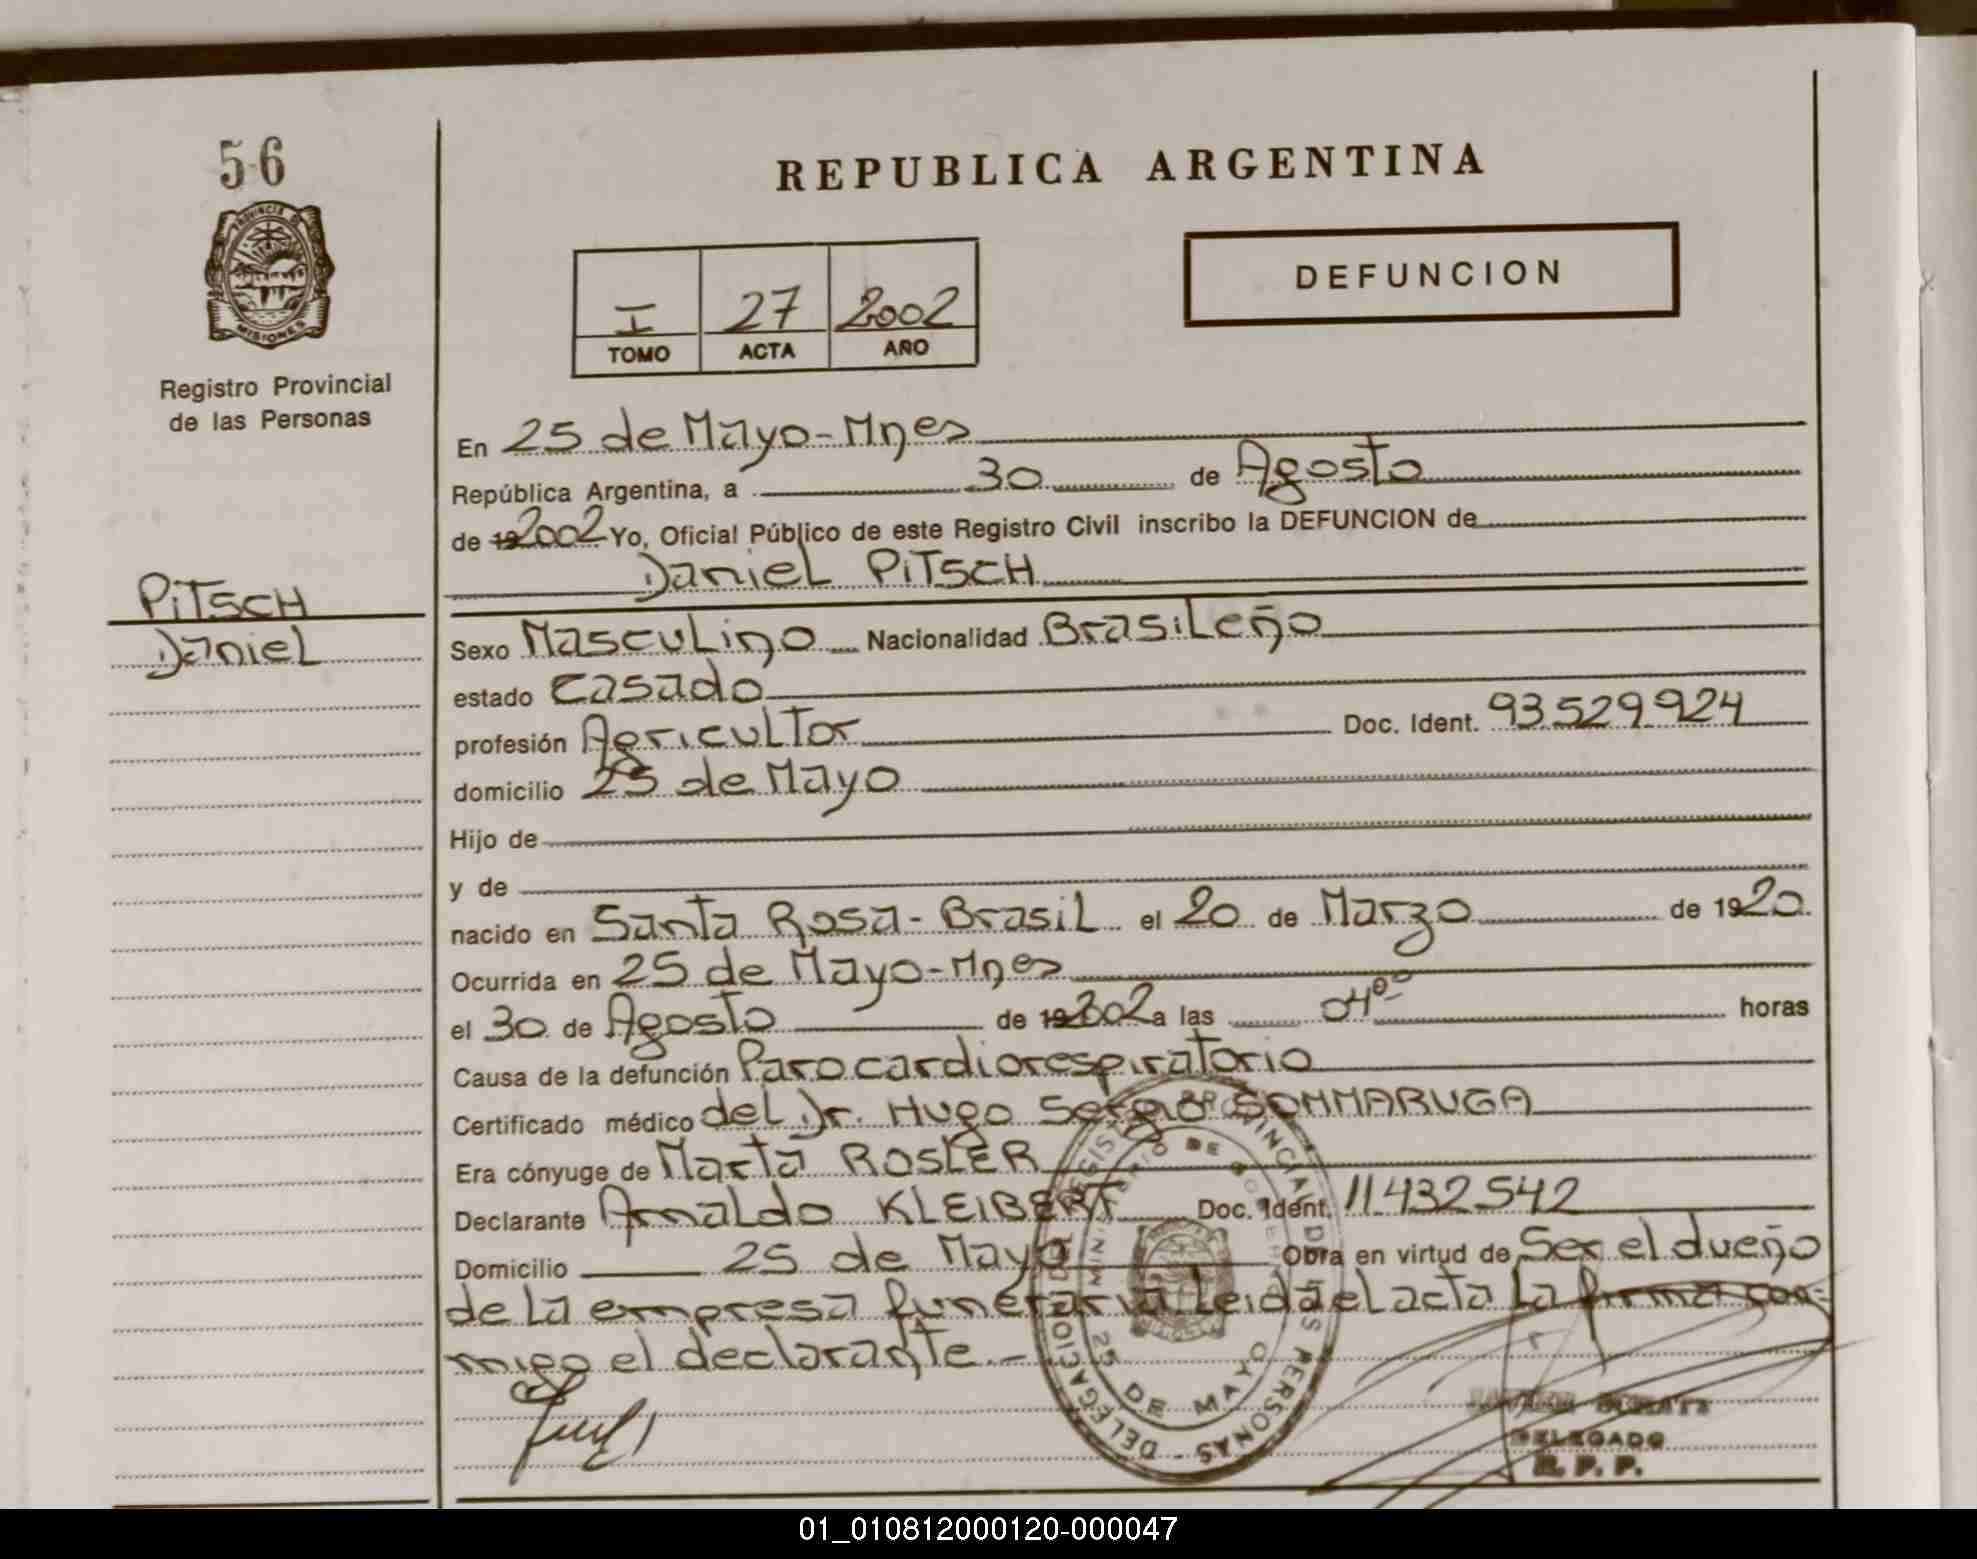 56
PROVINCIA DE
MISIONES
Registro Provincial
de las Personas
PITSCH
Daniel
REPUBLICA ARGENTINA
I 27 2002
TOMO ACTA AÑO
DEFUNCION
En 25 de Mayo-Mnes
República Argentina, a 30 de Agosto
de 19 2002 Yo, Oficial Público de este Registro Civil inscribo la DEFUNCION de
Daniel PITSCH
Sexo Masculino Nacionalidad Brasileño
estado casado
profesión Agricultor Doc. Ident. 93.529.924
domicilio 25 de Mayo
Hijo de
y de
nacido en Santa Rosa-Brasil el 20 de Marzo de 1920.
Ocurrida en 25 de Mayo-Mnes
el 30 de Agosto de 19 2002 a las 04⁰⁰ horas
Causa de la defunción Paro cardiorespiratorio
Certificado médico del Dr. Hugo Sergio SOMMARUGA
Era cónyuge de Marta ROSLER
Declarante Arnaldo KLEIBERT Doc. Ident. 11.432.542
Domicilio 25 de Mayo Obra en virtud de Ser el dueño
de la empresa funeraria. Leida el acta la firma con-
migo el declarante.-
DELEGADO
R. P. P.
25 DE MAYO
01_010812000120-000047